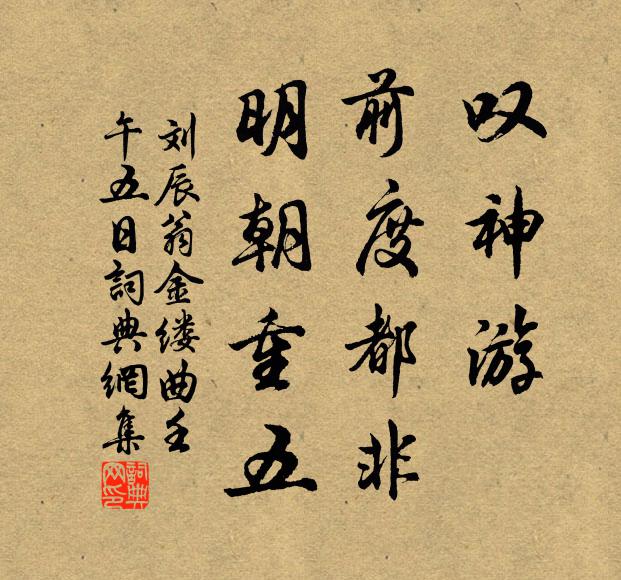 叹神游
前度都非
明朝重五
刘辰翁金缕曲壬
午五日詞典網集
詞典网印